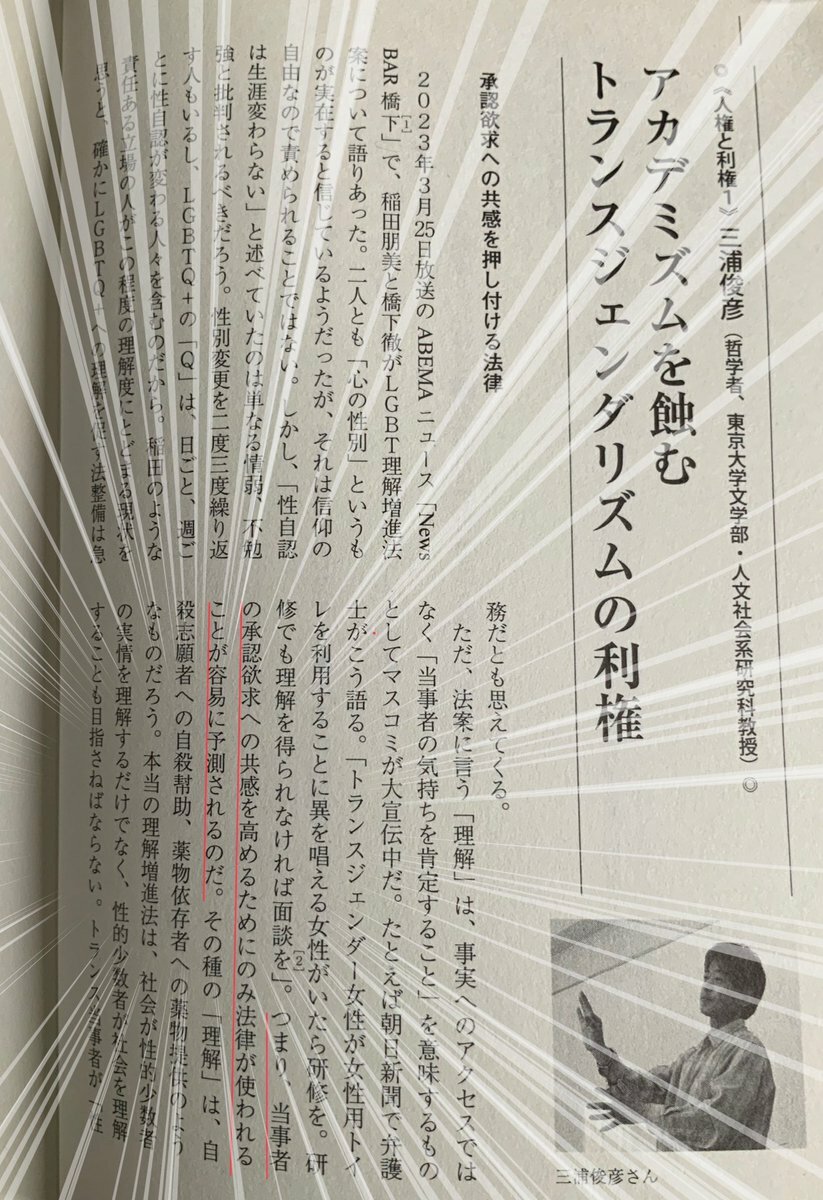 ◎《人権と利権1》三浦俊彦（哲学者、東京大学文学部・人文社会系研究科教授）◎
アカデミズムを蝕む
トランスジェンダリズムの利権
承認欲求への共感を押し付ける法律
２０２３年３月25日放送の ABEMA ニュース「News
BAR 橋下」[1]で、稲田朋美と橋下徹がＬＧＢＴ理解増進法
案について語りあった。二人とも「心の性別」というも
のが実在すると信じているようだったが、それは信仰の
自由なので責められることではない。しかし、「性自認
は生涯変わらない」と述べていたのは単なる情弱、不勉
強と批判されるべきだろう。性別変更を二度三度繰り返
す人もいるし、ＬＧＢＴＱ＋の「Ｑ」は、日ごと、週ご
とに性自認が変わる人々を含むのだから。稲田のような
責任ある立場の人がこの程度の理解度にとどまる現状を
思うと、確かにＬＧＢＴＱ＋への理解を促す法整備は急
務だとも思えてくる。
ただ、法案に言う「理解」は、事実へのアクセスでは
なく「当事者の気持ちを肯定すること」を意味するもの
としてマスコミが大宣伝中だ。たとえば朝日新聞で弁護
士がこう語る。「トランスジェンダー女性が女性用トイ
レを利用することに異を唱える女性がいたら研修を。研
修でも理解を得られなければ面談を」[2]。つまり、当事者
の承認欲求への共感を高めるためにのみ法律が使われる
ことが容易に予測されるのだ。その種の「理解」は、自
殺志願者への自殺幇助、薬物依存者への薬物提供のよう
なものだろう。本当の理解増進法は、社会が性的少数者
の実情を理解するだけでなく、性的少数者が社会を理解
することも目指さねばならない。トランス当事者が「性
三浦俊彦さん